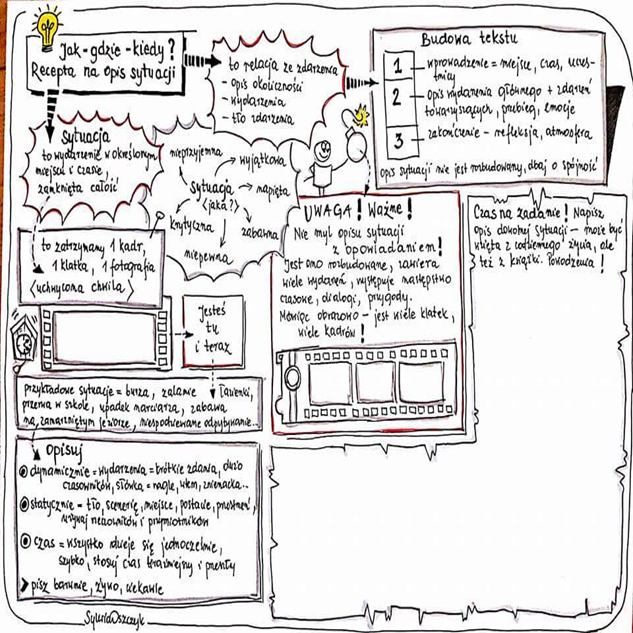 Jak-gdzie-kiedy?
Recepta na opis sytuacji
to relacja ze zdarzenia
- opis okoliczności
- wydarzenia
- tło zdarzenia
Budowa tekstu
1 - wprowadzenie = miejsce, czas, uczest-
nicy
2 - opis wydarzenia głównego + zdarzeń
towarzyszących, przebieg, emocje
3 - zakończenie - refleksja, atmosfera
opis sytuacji nie jest rozbudowany, dbaj o spójność
Sytuacja
to wydarzenie w określonym
miejscu i czasie,
zamknięta całość
nieprzyjemna
wyjątkowa
Sytuacja
<jaka?>
napięta
krytyczna
zabawna
niepewna
to zatrzymany 1 kadr,
1 klatka, 1 fotografia
<uchwycona chwila>
Jesteś
tu
i teraz
UWAGA! Ważne!
Nie myl opisu sytuacji
z opowiadaniem!
Jest ono rozbudowane, zawiera
wiele wydarzeń, występuje następstwo
czasowe, dialogi, przygody.
Mówiąc obrazowo - jest wiele klatek,
wiele kadrów!
Czas na zadanie! Napisz
opis dowolnej sytuacji - może być
wzięta z codziennego życia, ale
też z książki. Powodzenia!
przykładowe sytuacje = burza, zalanie łazienki,
przerwa w szkole, upadek narciarza, zabawa
na zamarzniętym jeziorze, niespodziewane odwiedziny...
Opisuj
dynamicznie = wydarzenia = krótkie zdania, dużo
czasowników, słówka = nagle, wtem, znienacka...
statycznie = tło, scenerię, miejsce, postacie, przestrzeń,
używaj rzeczowników i przymiotników
czas = wszystko dzieje się jednocześnie,
szybko, stosuj czas teraźniejszy i przeszły
> pisz barwnie, żywo, ciekawie
Sylwia Oszczyk